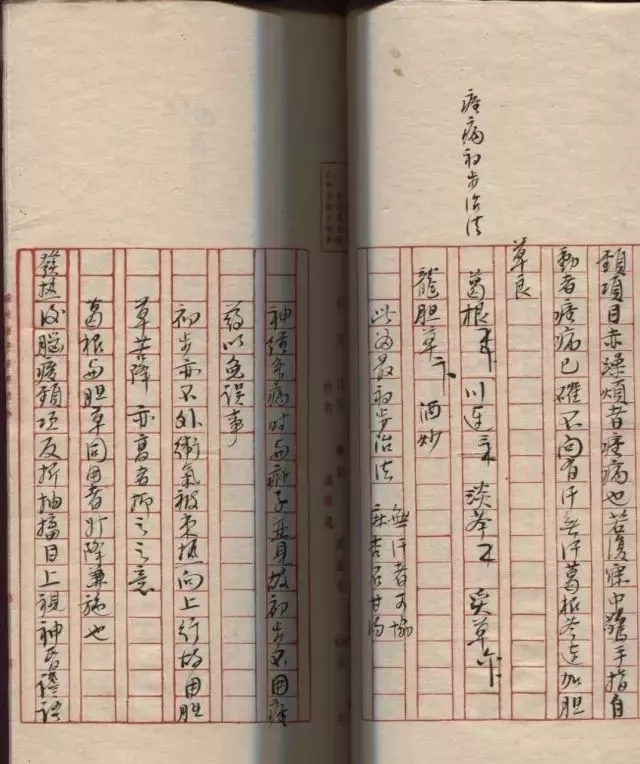 頸項目赤躁煩者痙病也若復寐中驚手指自
動者痙病已確不問有汗無汗葛根芩連加胆
草良
痙病初步治法
葛根 川連 淡芩 炙草
龍胆草 酒炒
此為最初步治法 無汗者可協
麻杏石甘湯
神經系病時与痧子並見故初步不用痙
药以免誤事
初步亦不外衛氣被束热向上行故用胆
草苦降 亦高者抑之之意
葛根与胆草同用者升降兼施也
發热後脑痠頸項反折抽搐目上視神昏譫語